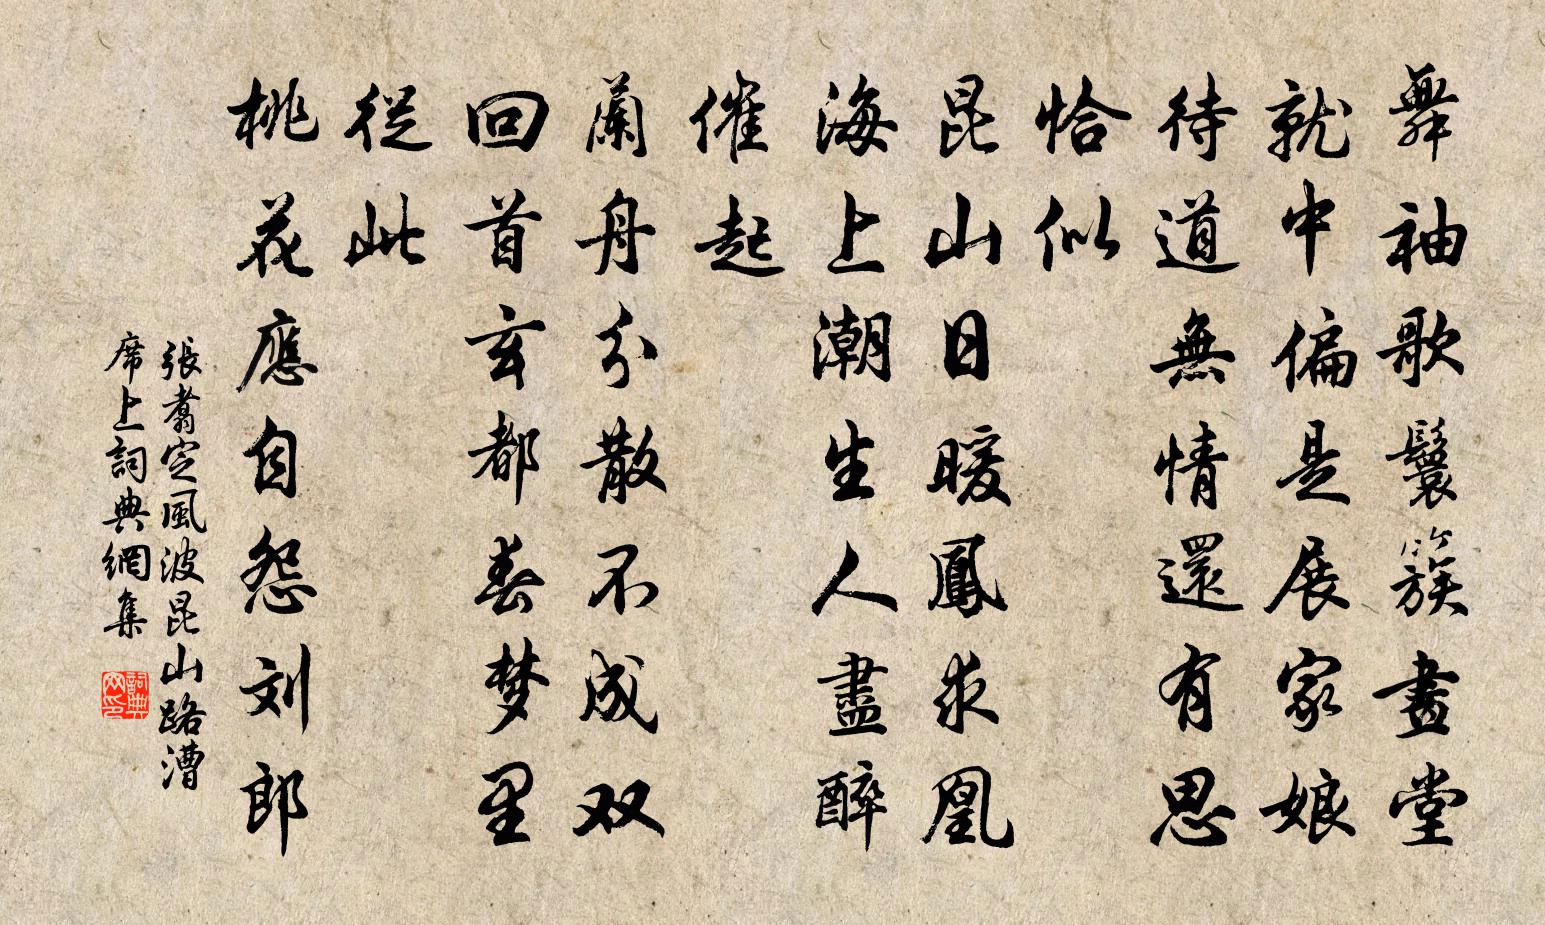 舞袖歌鬟簇畫堂
就中偏是展家娘
待道無情還有思
恰似
昆山日暖鳳求凰
海上潮生人盡醉
催起
蘭舟分散不成双
回首玄都春梦里
從此
桃花應自怨刘郎
張翥定風波昆山路漕
席上詞典網集
詞典
网印